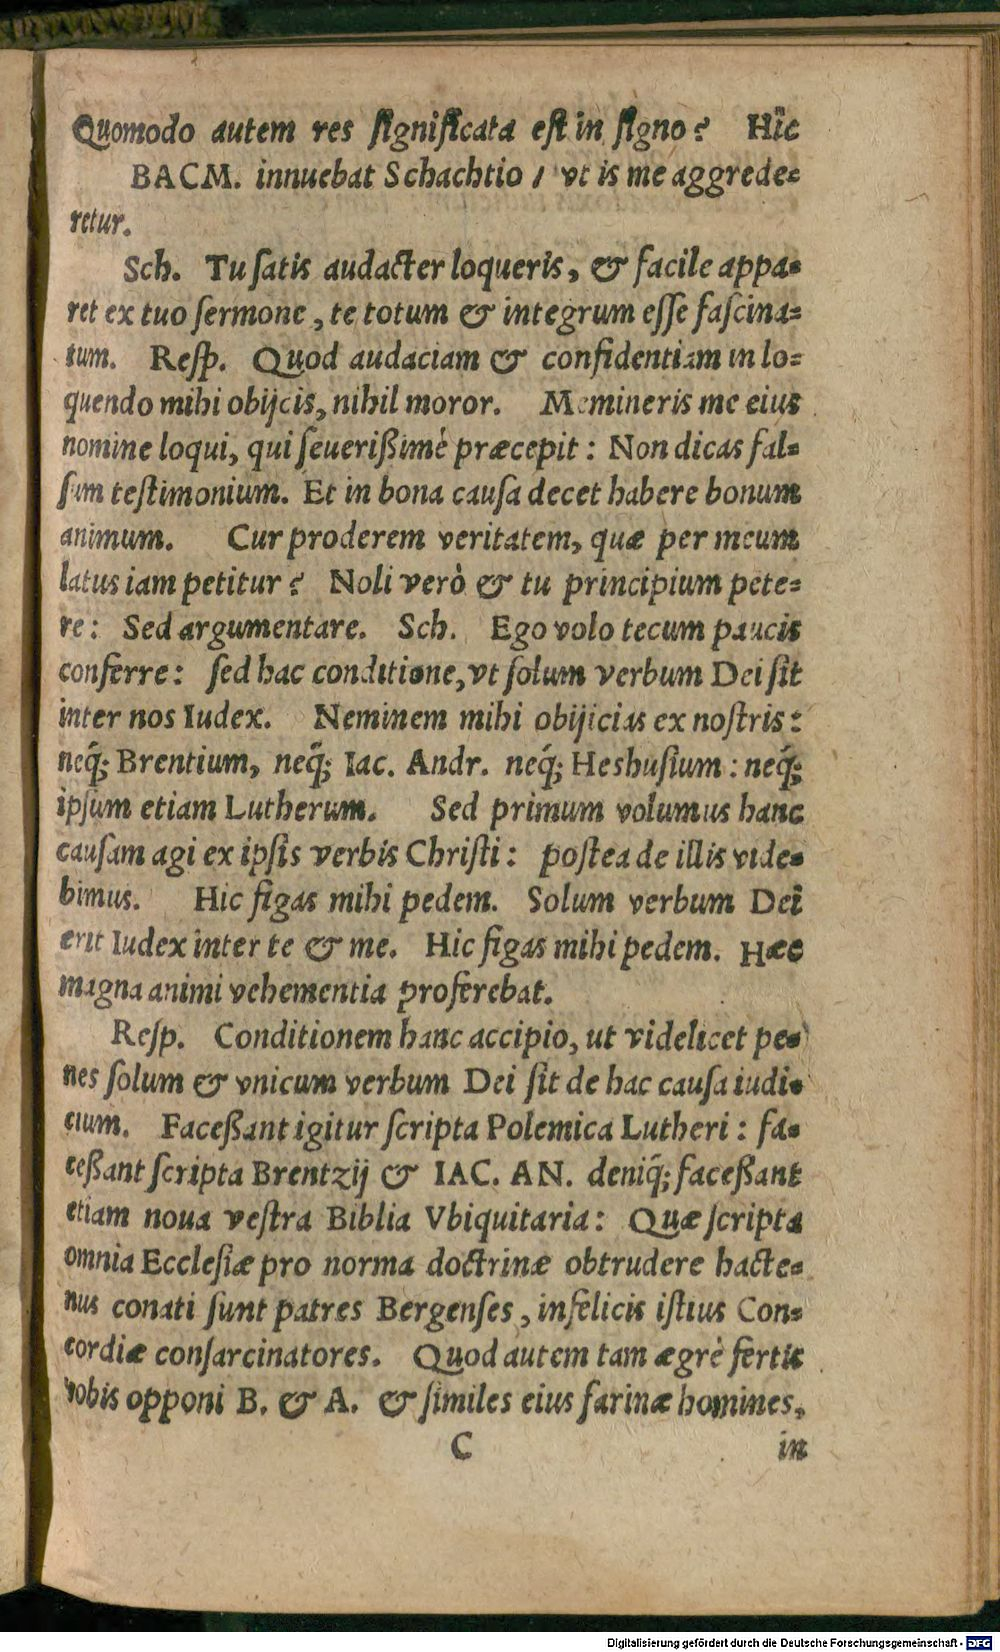 Quomodo autem res ſignificata eſt in ſigno? Hic
BACM. innuebat Schachtio / vt is me aggrede⸗
retur.
Sch. Tu ſatis audacter loqueris, & facile appa⸗
ret ex tuo ſermone, te totum & integrum eſſe faſcina⸗
tum. Reſp. Quod audaciam & confidentiam in lo⸗
quendo mihi obijcis, nihil moror. Memineris me eius
nomine loqui, qui ſeuerißimè præcepit: Non dicas fal⸗
ſum teſtimonium. Et in bona cauſa decet habere bonum
animum. Cur proderem veritatem, quæ per meum
latus iam petitur? Noli verò & tu principium pete⸗
re: Sed argumentare. Sch. Ego volo tecum paucis
conferre: ſed hac conditione, vt ſolum verbum Dei ſit
inter nos Iudex. Neminem mihi obijicias ex noſtris:
neq́; Brentium, neq́; Iac. Andr. neq́; Heshuſium: neq́;
ipſum etiam Lutherum. Sed primum volumus hanc
cauſam agi ex ipſis verbis Chriſti: poſtea de illis vide⸗
bimus. Hic figas mihi pedem. Solum verbum Dei
erit Iudex inter te & me. Hic figas mihi pedem. Hæc
magna animi vehementia proferebat.
Reſp. Conditionem hanc accipio, ut videlicet pe⸗
nes ſolum & vnicum verbum Dei ſit de hac cauſa iudi⸗
cium. Faceßant igitur ſcripta Polemica Lutheri: fa⸗
ceßant ſcripta Brentzij & IAC. AN. deniq́; faceßant
etiam noua veſtra Biblia Vbiquitaria: Quæ ſcripta
omnia Eccleſiæ pro norma doctrinæ obtrudere hacte⸗
nus conati ſunt patres Bergenſes, infelicis iſtius Con⸗
cordiæ conſarcinatores. Quod autem tam ægrè fertis
vobis opponi B. & A. & ſimiles eius farinæ homines,
C in
Digitalisierung gefördert durch die Deutsche Forschungsgemeinschaft - DFG